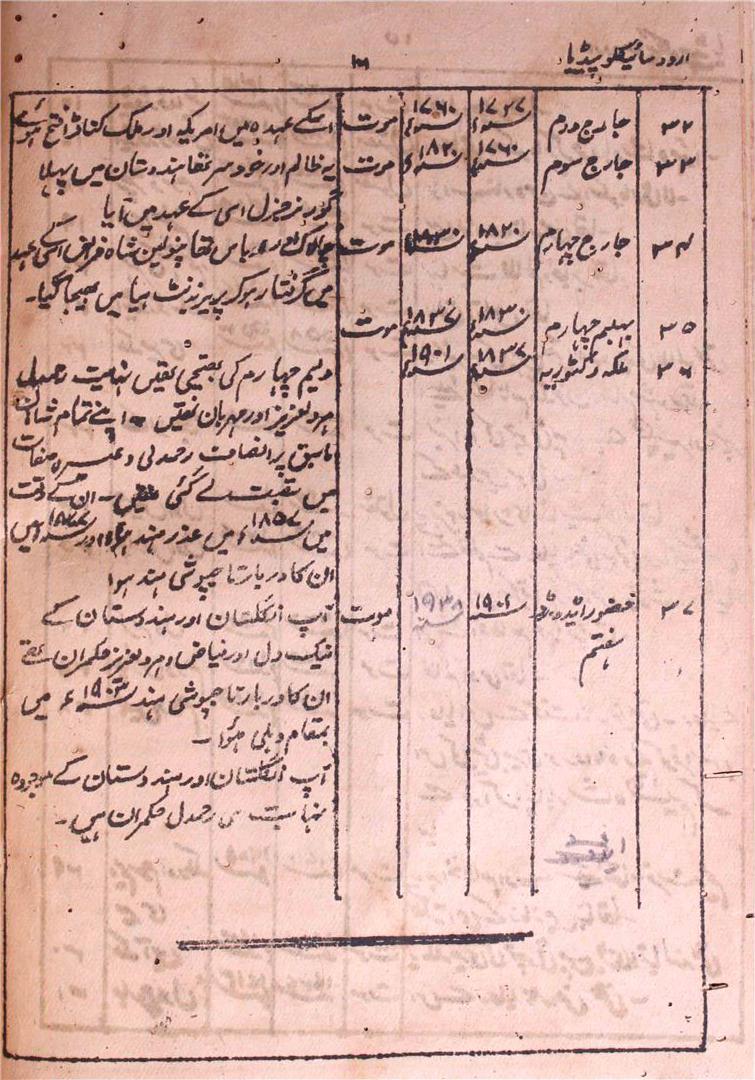 اردو سائیکلوپیڈیا
۳۲ جارج دوم ۱۷۲۷ء ۱۷۶۰ء موت اسکے عہد میں امریکہ اور ملک کناڈا فتح ہوئے
۳۳ جارج سوم ۱۷۶۰ء ۱۸۲۰ء موت یہ ظالم اور خود سر تھا ہندوستان میں پہلا
گورنر جنرل اسی کے عہد میں آیا
۳۴ جارج چہارم ۱۸۲۰ء ۱۸۳۰ء موت چالاک اور عیاش تھا نپولین شاہ فرانس اسکے عہد
میں گرفتار ہوکر بھیجا گیا۔
۳۵ ولیم چہارم ۱۸۳۰ء ۱۸۳۷ء موت
۳۶ ملکہ وکٹوریہ ۱۸۳۷ء ۱۹۰۱ء
ولیم چہارم کی بھتیجی تھیں نہایت رحمدل
ہردلعزیز اور مہربان تھیں ۔ اپنے تمام شاہان
ماسبق پر انصاف رحمدلی وغیرہ صفات
میں سبقت لے گئی تھیں۔ ان کے وقت
میں ۱۸۵۷ء میں غدر ہند ہوا اور ۱۸۷۷ء میں
ان کا دربار تاجپوشی ہند ہوا
۳۷ حضور ایڈورڈ ۱۹۰۱ء ۱۹۳۸ موت آپ انگلستان اور ہندوستان کے
ہفتم نیک دل اور فیاض و ہردلعزیز حکمران تھے
ان کا دربار تاجپوشی ہند ۱۹۰۳ء میں
بمقام دہلی ہوا ۔
آپ انگلستان اور ہندوستان کے موجودہ
نہایت ہی رحمدل حکمران ہیں۔